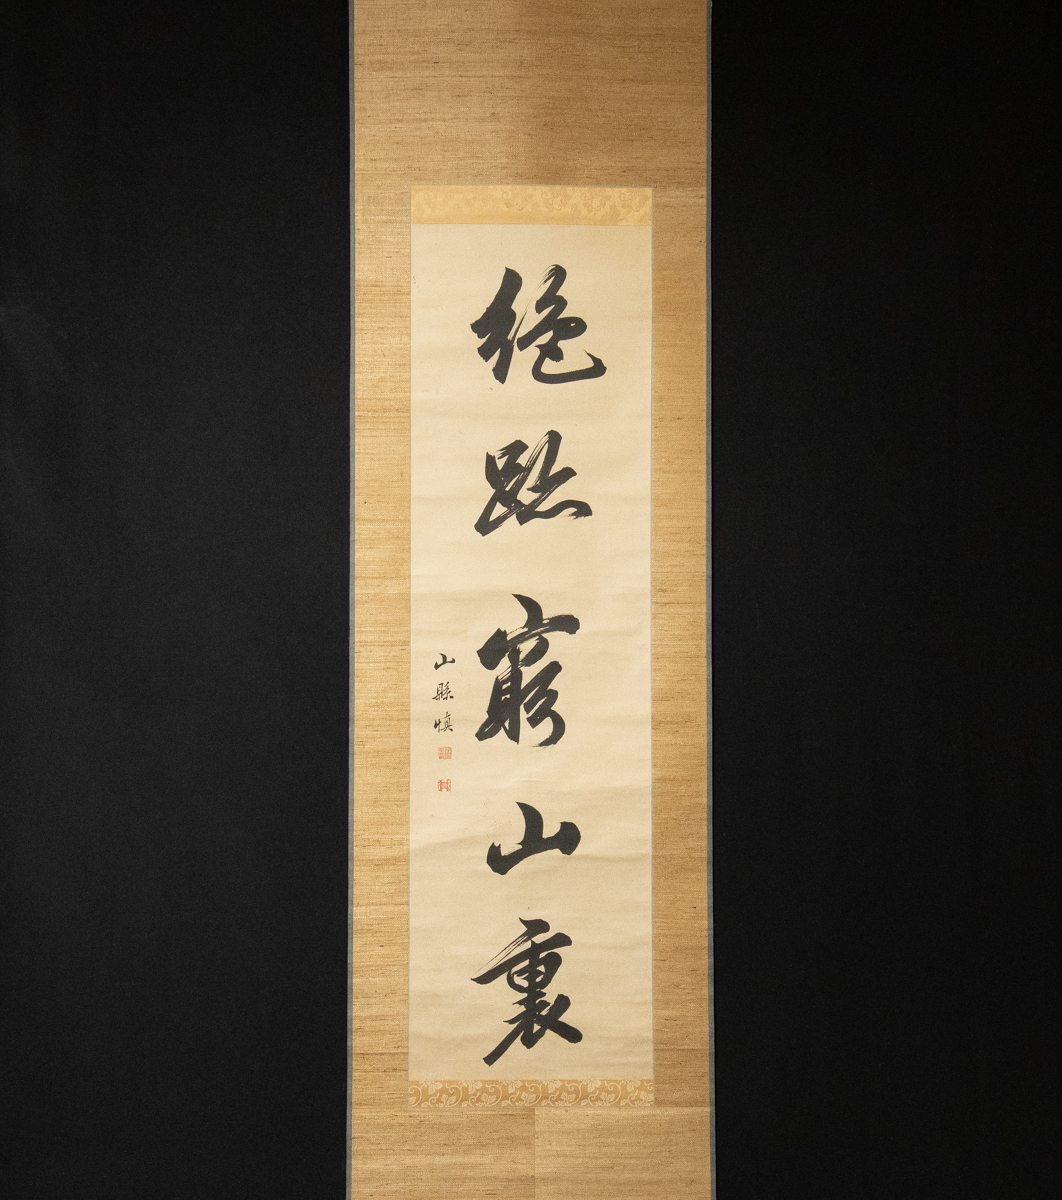 絶跡窮山裏
山縣慎